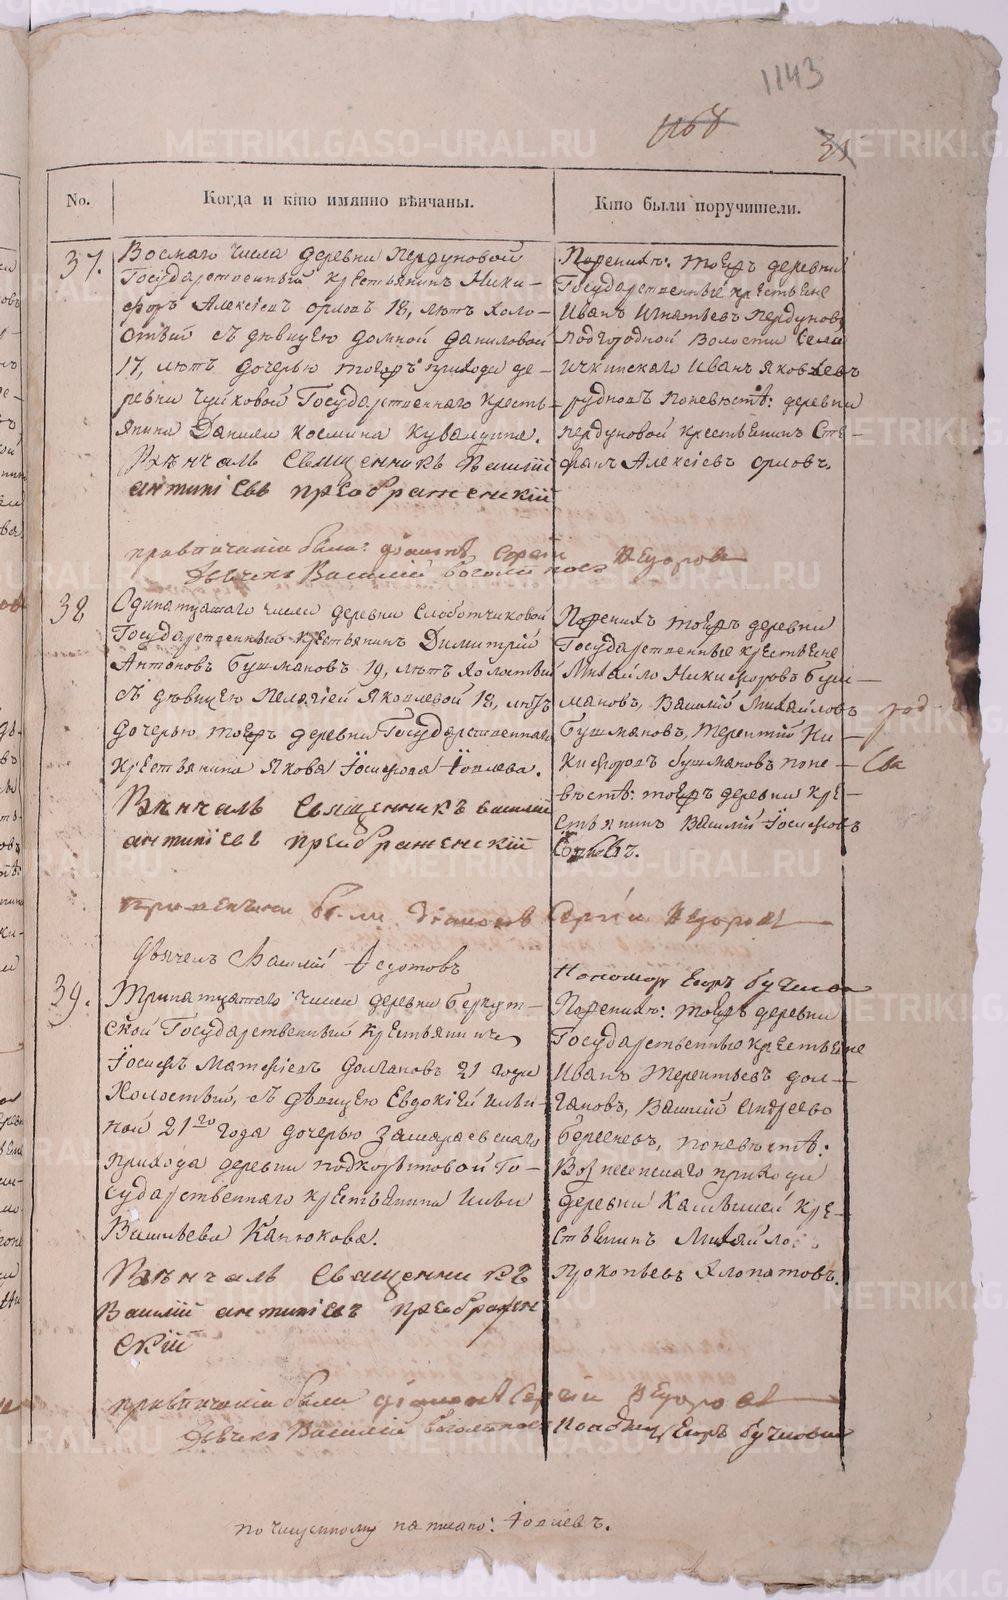 1143
No.
Когда и кто имянно вѣнчаны.
Кто были поручители.
37.
Восмаго числа деревни Пердуновой
Государственный крестьянинъ Ники-
форъ Алексіевъ Орловъ 18, лѣтъ холо-
стый съ дѣвицею Домной Даниловой
17, лѣтъ дочерью тоежъ прихода де-
ревни Чуйковой Государственнаго кресть-
янина Данила Космина Кувалдина.
Вѣнчалъ Священникъ Василій
Антипіевъ Преображенскій
Пореникъ: тоежъ деревни
Государственные крестьяне
Иванъ Игнатьевъ Пердуновъ
Подгородной Волости Села
Ичкинскаго Иванъ Яковлевъ
Рудновъ Поневѣстѣ: деревни
Пердуновой крестьянинъ Сте-
фанъ Алексіевъ Орловъ.
привѣнчаніи были: діаконъ Сергій Федоровъ
Дьячекъ Василій
38
Одинатцатаго числа деревни Слоботчиковой
Государственный крестьянинъ Димитрій
Антоновъ Бушмановъ 19, лѣтъ холостый
съ дѣвицею Пелагіей Яковлевой 18, лѣтъ
дочерью тоежъ деревни Государственнаго
крестьянина Якова Іосифова Іовлева.
Вѣнчалъ Священникъ Василій
Антипіевъ Преображенскій
Пореникъ тоежъ деревни
Государственные крестьяне
Михайло Никифоровъ Буш-
мановъ, Василій Михайловъ
Бушмановъ, Терентій Ни-
кифоровъ Бушмановъ Поне-
вѣстѣ: тоежъ деревни кре-
стьянинъ Василій Іосифовъ
при венчани были діаконъ Сергій Федоровъ
Дьячекъ Василій Федотовъ
Пономорь Егоръ
39.
Тринатцатаго числа деревни Беркут-
ской Государственный крестьянинъ
Іосифъ Матфіевъ Долгановъ 21 года
Холостый, съ дѣвицею Евдокіей Ильи-
ной 21го года дочерью Замараевскаго
прихода деревни Подкорытовой Го-
сударственнаго крестьянина Ильи
Васильева Канюкова.
Вѣнчалъ Священникъ
Василій Антипіевъ Преображен
скій
Пореникъ: тоежъ деревни
Государственные крестьяне
Иванъ Терентьевъ Дол-
гановъ, Василій Андреевъ
Берсеневъ, Поневѣстѣ:
Вознесенскаго прихода
деревни Камышей кре-
стьянинъ Михайло
Прокопьевъ Хлопатовъ.
привѣнчаніи были діаконъ Сергій Федоровъ
Дьячекъ Василій
Егоръ
по чищенному написано: Іовлевъ.
METRIKI.GASO-URAL.RU